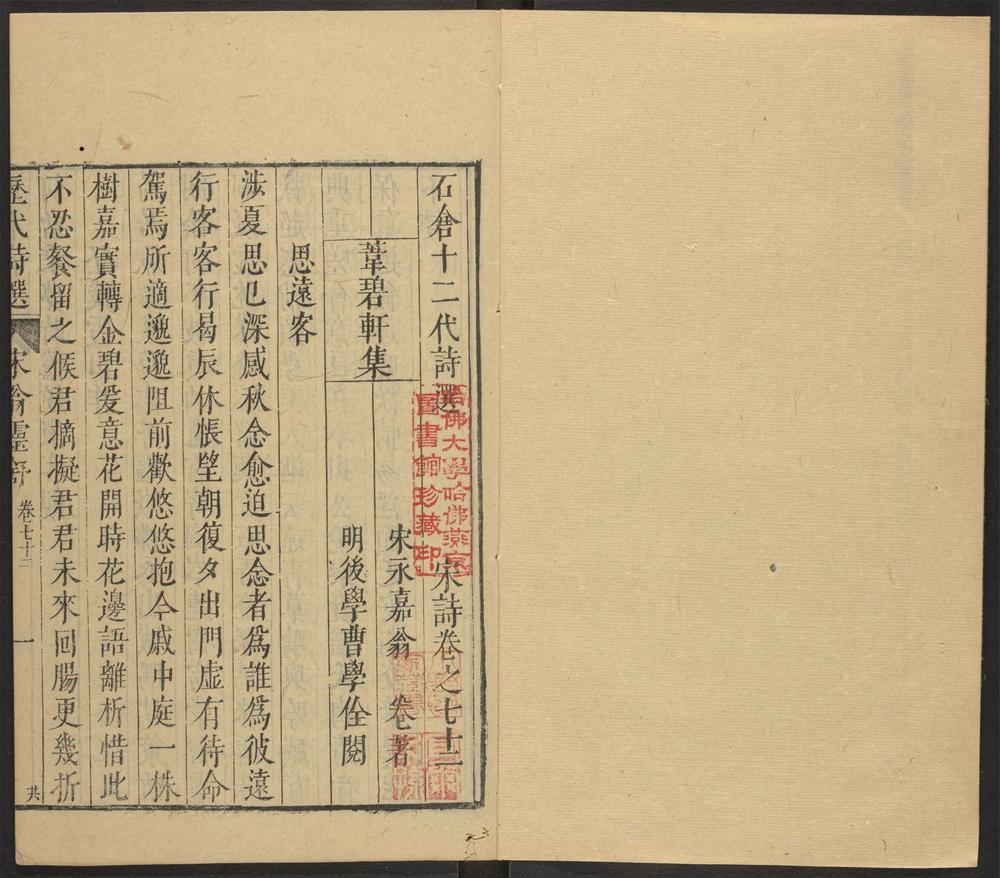 石倉十二代詩選　宋詩卷之七十二
哈佛大學哈佛燕京
圖書館珍藏印
宋永嘉翁　卷著
葦碧軒集
明後學曹學佺閱
思遠客
涉夏思已深感秋念愈迫思念者爲誰爲彼遠
行客客行曷辰休悵望朝復夕出門虛有待命
駕焉所適邈邈阻前歡悠悠抱今戚中庭一株
樹嘉實轉金碧爰意花開時花邊語離析惜此
不忍餐留之候君摘擬君君未來回腸更幾折
歷代詩選　宋翁靈舒　卷七十二　一　共